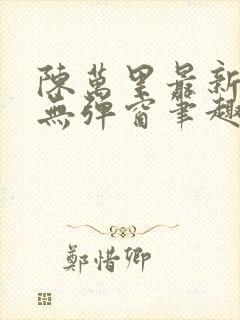 陳萬里最新
無彈窗筆趣
鄭惜卿